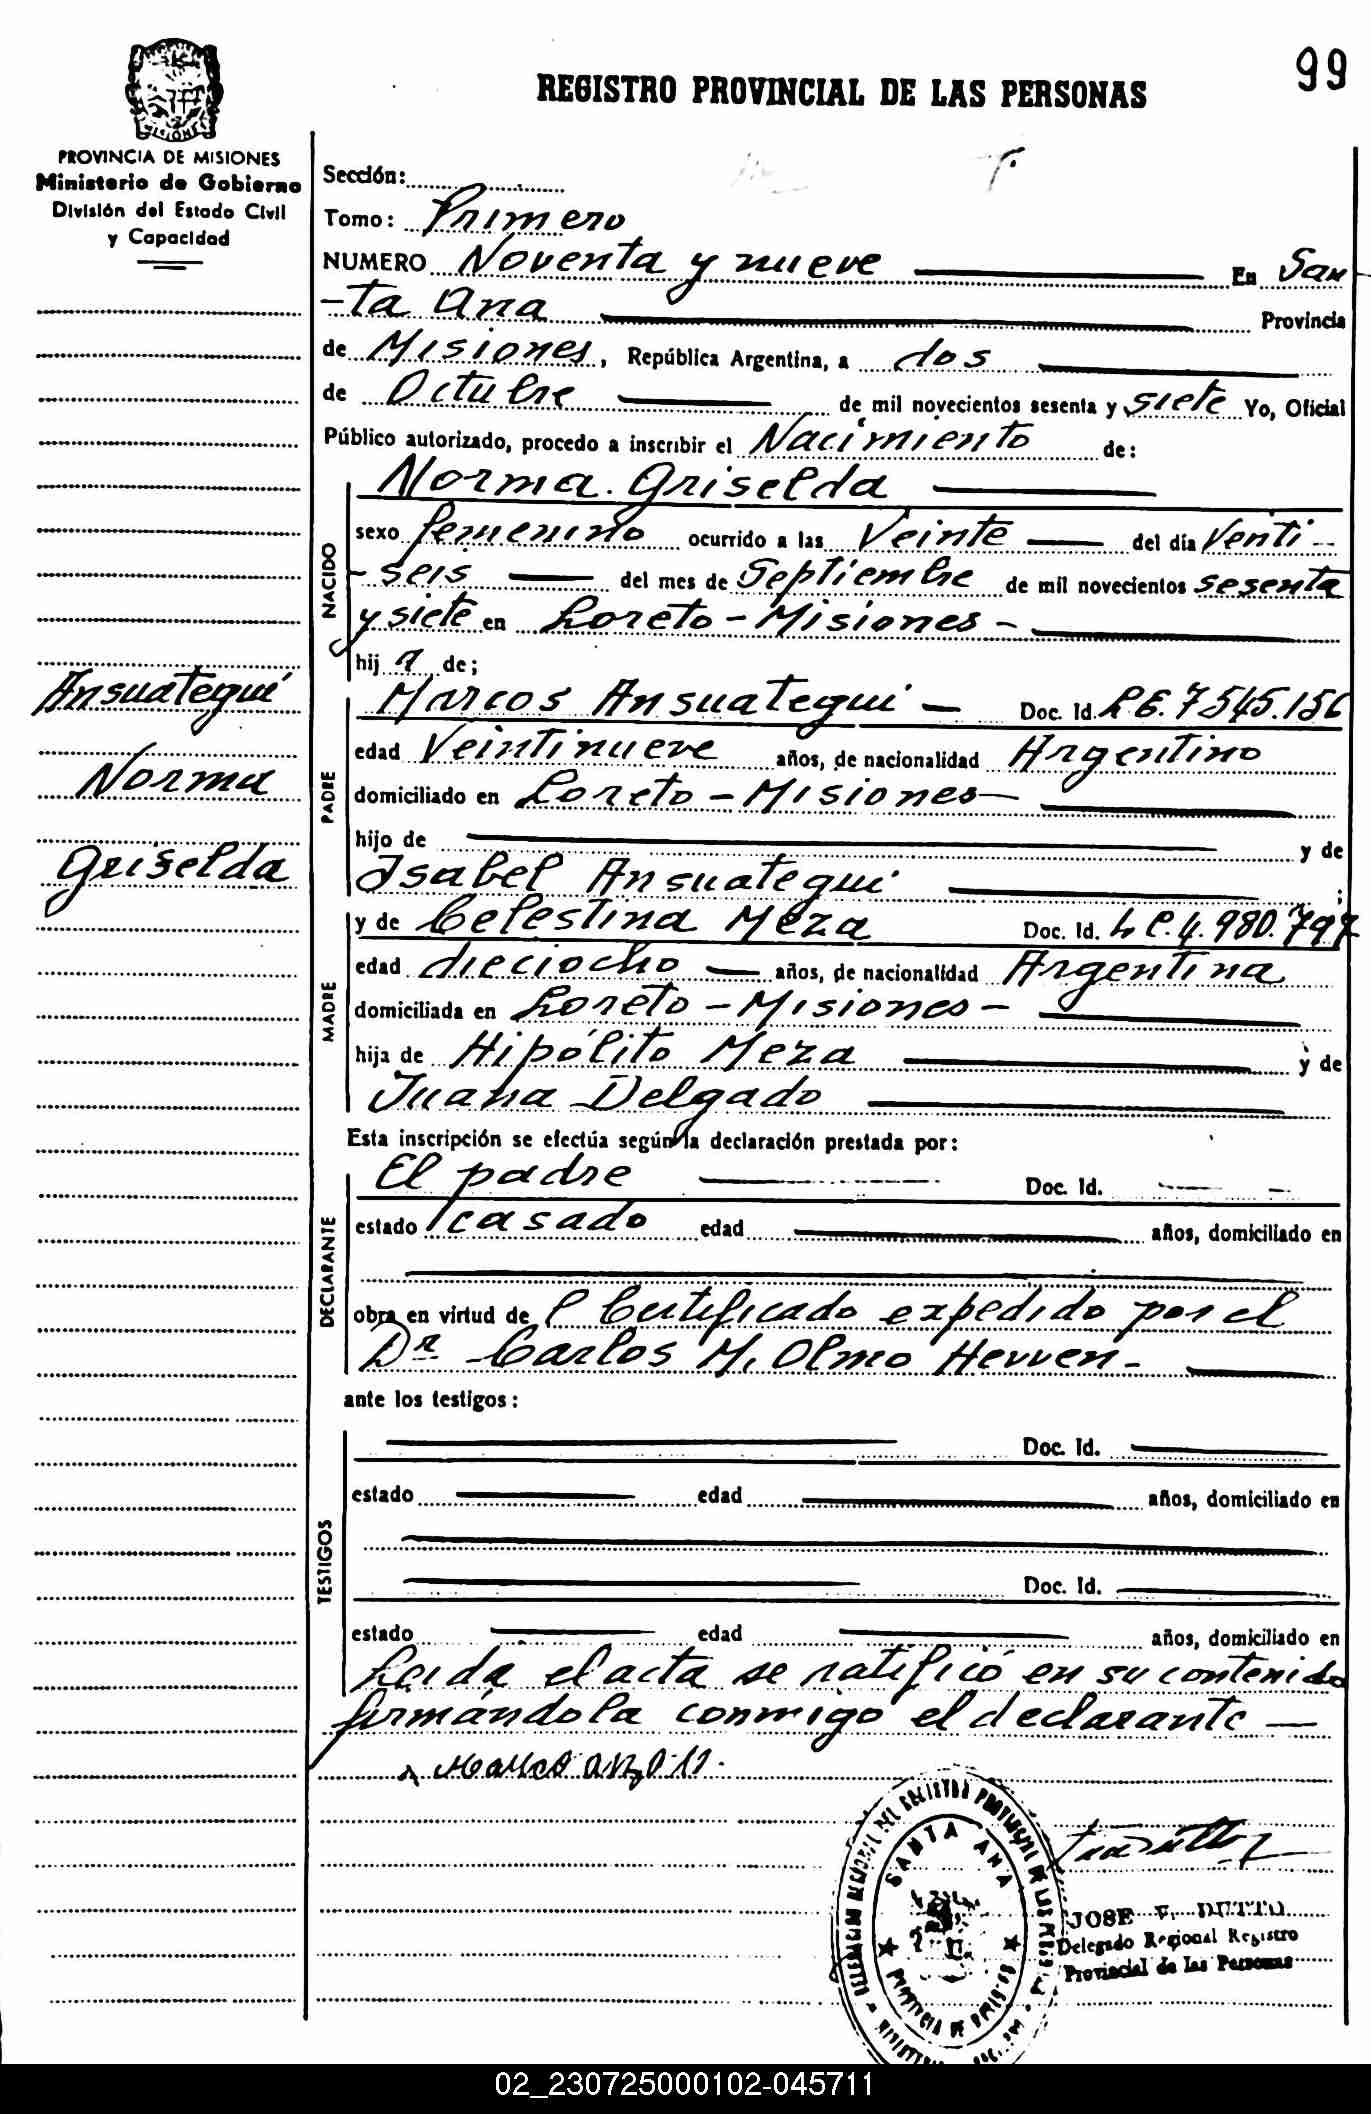 99
REGISTRO PROVINCIAL DE LAS PERSONAS
PROVINCIA DE MISIONES
Ministerio de Gobierno
División del Estado Civil
y Capacidad
Sección:
Tomo: Primero
NUMERO Noventa y nueve En San
-ta Ana Provincia
de Misiones, República Argentina, a dos
de Octubre de mil novecientos sesenta y siete Yo, Oficial
Público autorizado, procedo a inscribir el Nacimiento de:
Norma Griselda
NACIDO
sexo femenino ocurrido a las Veinte del día Venti-
-seis del mes de Septiembre de mil novecientos sesenta
y siete en Loreto - Misiones -
hija de;
Ansuategui
Norma
Griselda
PADRE
Marcos Ansuategui - Doc. Id. L.E. 7.545.156
edad Veintinueve años, de nacionalidad Argentino
domiciliado en Loreto - Misiones -
hijo de y de
Isabel Ansuategui ;
MADRE
y de Celestina Meza Doc. Id. L.C. 4.980.797
edad dieciocho años, de nacionalidad Argentina
domiciliada en Loreto - Misiones -
hija de Hipólito Meza y de
Juana Delgado
Esta inscripción se efectúa según la declaración prestada por:
DECLARANTE
El padre Doc. Id.
estado casado edad años, domiciliado en
obra en virtud de Certificado expedido por el
Dr Carlos M. Olmo Herren-
ante los testigos:
TESTIGOS
Doc. Id.
estado edad años, domiciliado en
Doc. Id.
estado edad años, domiciliado en
Leída el acta se ratificó en su contenido
firmándola conmigo el declarante -
DELEGACION REGIONAL DEL REGISTRO PROVINCIAL DE LAS
SANTA ANA
PROVINCIA DE MISIONES
JOSE V. DUTTO
Delegado Regional Registro
Provincial de las Personas
02_230725000102-045711